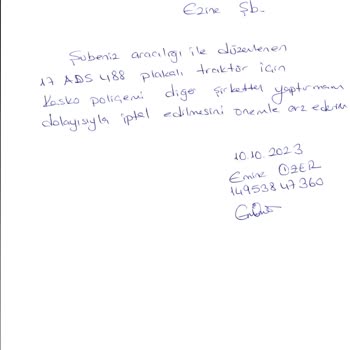 Ezine Şb.
Şubeniz aracılığı ile düzenlenen
17 ADS 488 plakalı traktör için
Kasko poliçemi diğer şirketten yaptırmam
dolayısıyla iptal edilmesini önemle arz ederim
10.10.2023
Emine ÖZER
14953847360